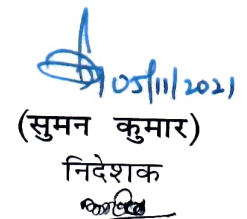 05/11/2021
(सुमन कुमार)
निदेशक